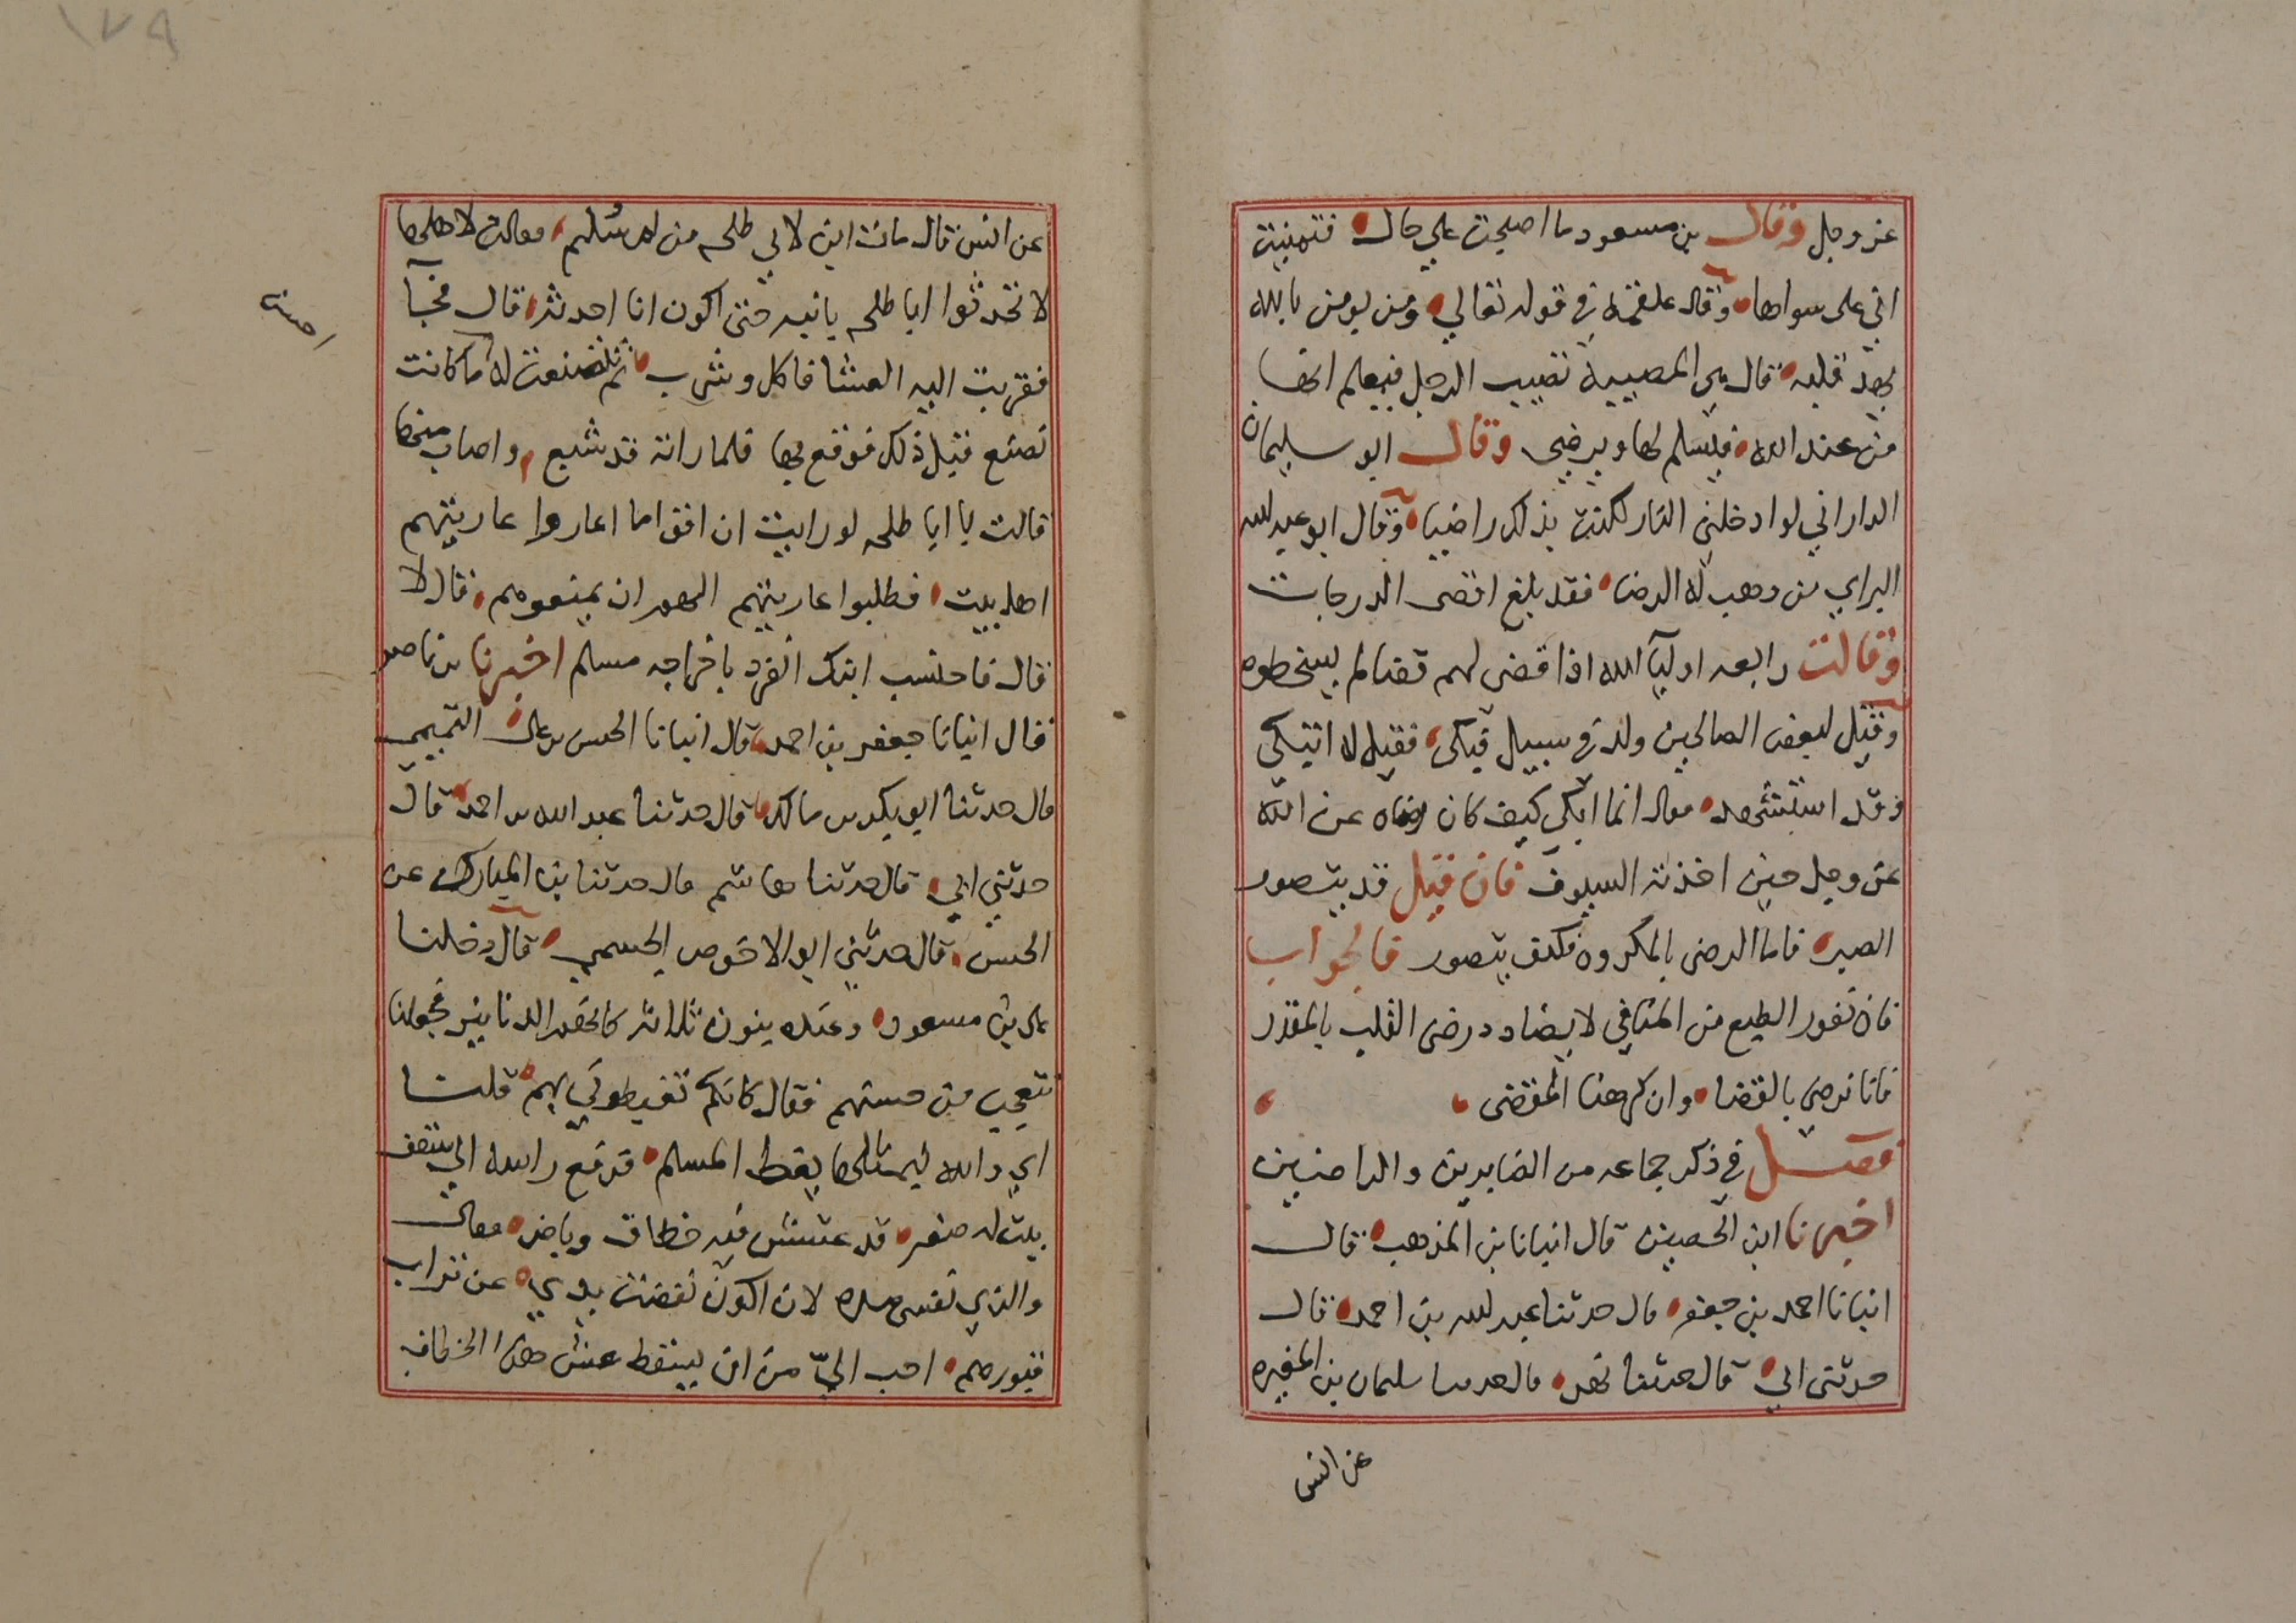 عز وجل وقال بن مسعود ما اصبحت علي حال فتمنيت
اني على سواها وقال علقمة في قوله تعالي ومن يومن بالله
يهد قلبه قال هي المصيبة تصيب الرجل فيعلم انها
من عند الله فيسلم لها ويرضى وقال ابو سليمان
الداراني لو ادخلني النار لكنت بذلك راضيا وقال ابو عبد لله
البراي من وهب له الرضا فقد بلغ اقصى الدرجات
وقالت رابعه اوليآ الله اذا قضى لهم قضا لم يسخطوه
وقيل لبعض الصالحين ولد في سبيل فبكى فقيل له اتبكى
وقد استشهد فقال انما ابكي كيف كان رضاه عن الله
عز وجل حين اخذته السيوف فان قيل قد يتصور
الصبر فاما الرضى بالمكروه فكيف يتصور فالجواب
فان نفور الطبع من المنافي لا يضاد رضى القلب بالمقدر
فانا نرضى بالقضا وان كرهنا المقضى
فصل في ذكر جماعه من الصابرين والراضيين
اخبرنا ابن الحصين قال انبانا بن المذهب قال
انبانا احمد بن جعفر قال حدثنا عبد لله بن احمد قال
حدثنى ابي قال حدثنا بهز قال حدثنا سليمان بن المغيره
عن انس
١٧٩
عن انس قال مات ابن لابي طلحه من ام سليم فقالت لاهلها
لا تحدثوا ابا طلحه بابنه حتى اكون انا احدثه قال فجآ
فقربت اليه العشا فاكل وشرب ثم تصنعت له ما كانت
احسن
تصنع قبل ذلك فوقع بها فلما راته قد شبع واصاب منها
قالت يا ابا طلحه لو رايت ان اقواما اعاروا عاريتهم
اهل بيت فطلبوا عاريتهم الهم ان يمنعوهم قال لا
قال فاحتسب ابنك انفرد باخراجه مسلم اخبرنا بن ناصر
قال انبانا جعفر بن احمد قال انبانا الحسن بن على التميمى
قال حدثنا ابو بكر بن مالك قال حدثنا عبد الله بن احمد قال
حدثني ابي قال حدثنا هاشم قال حدثنا بن المبارك عن
الحسن قال حدثني ابو الاحوص الجسمي قال دخلنا
على بن مسعود وعنده بنون ثلاثه كانهم الدنانير فجعلنا
نتعجب من حسنهم فقال كانكم تغبطوني بهم قلنا
اي والله لبمثلها يغبط المسلم فرفع راسه الي سقف
بيت له صغير قد عشش فيه خطاف وباض فقال
والذي نفسى بيده لان اكون نفضت يدي عن تراب
قبورهم احب اليّ من ان يسقط عش هذا الخطاف